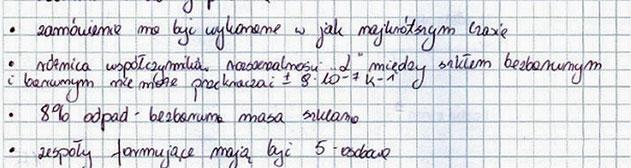 • zamówienie ma być wykonane w jak najkrótszym czasie
• różnica współczynnika rozszerzalności "α" między szkłem bezbarwnym
i barwnym nie może przekraczać ± 8·10-7 K-1
• 8% odpad - bezbarwna masa szklana
• zespoły formujące mają być 5-osobowe